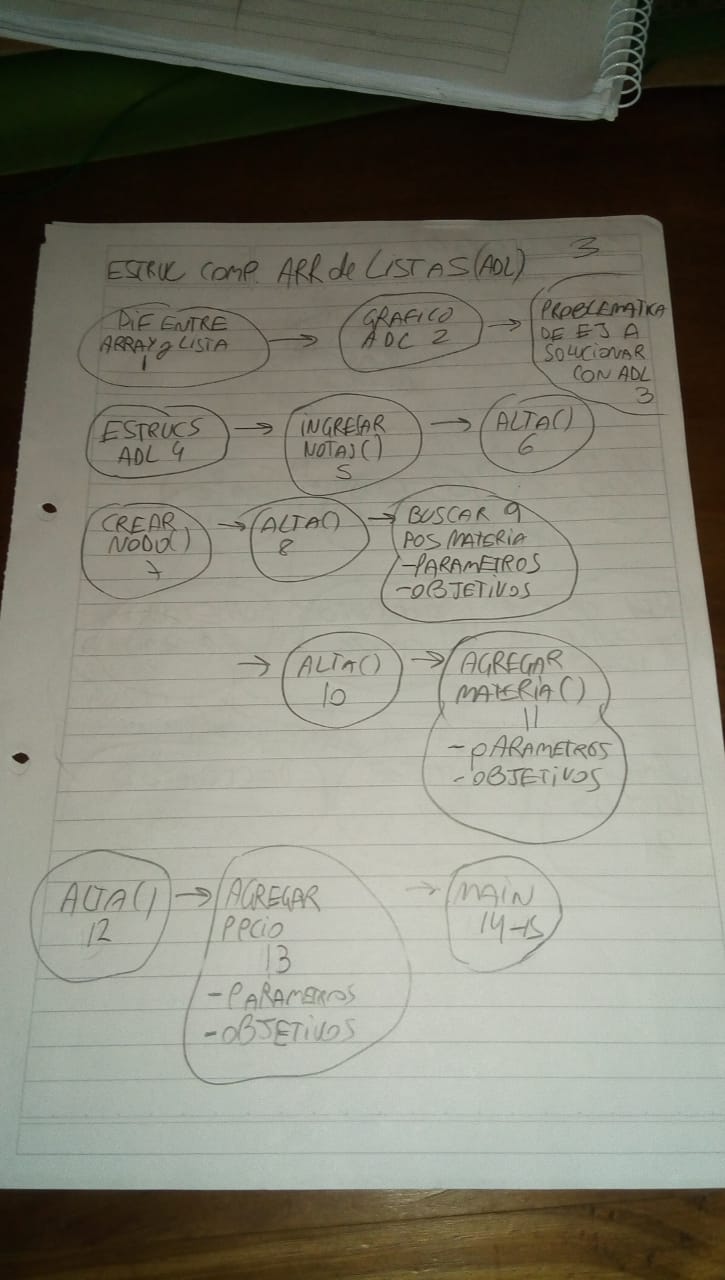 ESTRUC COMP. ARR de LISTAS (ADL) 3
DIF ENTRE
ARRAY y LISTA
1
→
GRAFICO
ADC 2
→
PROBLEMATIKA
DE EJ A
SOLUCIONAR
CON ADL
3
ESTRUCS
ADL 4
→
INGRESAR
NOTAS()
5
→
ALTA()
6
CREAR
NODO()
7
→
ALTA()
8
→
BUSCAR 9
POS MATERIA
-PARAMETROS
-OBJETIVOS
→
ALTA()
10
→
AGREGAR
MATERIA()
11
-PARAMETROS
-OBJETIVOS
ALTA()
12
→
AGREGAR
PPCIO
13
-PARAMETROS
-OBJETIVOS
→
MAIN
14-15